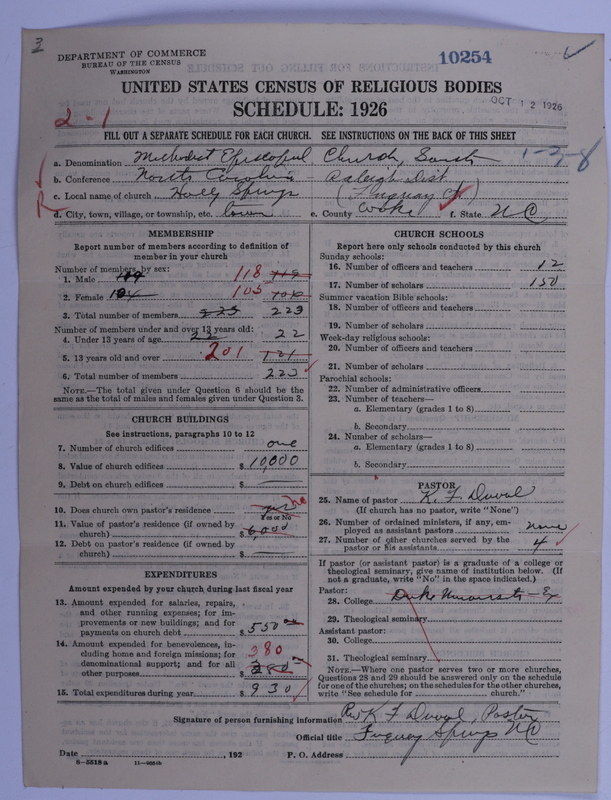 3
DEPARTMENT OF COMMERCE
BUREAU OF THE CENSUS
WASHINGTON
10254
UNITED STATES CENSUS OF RELIGIOUS BODIES
OCT 12 1926
SCHEDULE: 1926
2-1
FILL OUT A SEPARATE SCHEDULE FOR EACH CHURCH. SEE INSTRUCTIONS ON THE BACK OF THIS SHEET
a. Denomination Methodist Episcopal Church, South 1-2-8
b. Conference North Carolina Raleigh Dist
R
c. Local name of church Holly Springs (Fuquay Ct)
d. City, town, village, or township, etc. town e. County f. State N C
MEMBERSHIP
Report number of members according to definition of
member in your church
Number of members by sex:
1. Male 118
2. Female 104 105
3. Total number of members 223 223
Number of members under and over 13 years old:
4. Under 13 years of age 22 22
5. 13 years old and over 201
6. Total number of members 223
NOTE.—The total given under Question 6 should be the
same as the total of males and females given under Question 3.
CHURCH BUILDINGS
See instructions, paragraphs 10 to 12
7. Number of church edifices one
8. Value of church edifices $ 10,000
9. Debt on church edifices $
10. Does church own pastor's residence yes no
Yes or No
11. Value of pastor's residence (if owned by
church) $ 6,000
12. Debt on pastor's residence (if owned by
church) $
EXPENDITURES
Amount expended by your church during last fiscal year
13. Amount expended for salaries, repairs,
and other running expenses; for im-
provements or new buildings; and for
payments on church debt $ 550 00
14. Amount expended for benevolences, in-
cluding home and foreign missions; for 380
denominational support; and for all
other purposes $ 380
15. Total expenditures during year $ 930
CHURCH SCHOOLS
Report here only schools conducted by this church
Sunday schools:
16. Number of officers and teachers 12
17. Number of scholars 150
Summer vacation Bible schools:
18. Number of officers and teachers
19. Number of scholars
Week-day religious schools:
20. Number of officers and teachers
21. Number of scholars
Parochial schools:
22. Number of administrative officers
23. Number of teachers—
a. Elementary (grades 1 to 8)
b. Secondary
24. Number of scholars—
a. Elementary (grades 1 to 8)
b. Secondary
PASTOR
25. Name of pastor K. F. Duval
(If church has no pastor, write "None")
26. Number of ordained ministers, if any, em-
ployed as assistant pastors none
27. Number of other churches served by the
pastor or his assistants 4
If pastor (or assistant pastor) is a graduate of a college or
theological seminary, give name of institution below. (If
not a graduate, write "No" in the space indicated.)
Pastor:
28. College Duke University
29. Theological seminary
Assistant pastor:
30. College
31. Theological seminary
NOTE.—Where one pastor serves two or more churches,
Questions 28 and 29 should be answered only on the schedule
for one of the churches; on the schedules for the other churches,
write "See schedule for church."
Signature of person furnishing information Rev K F Duval, Pastor
Official title Fuquay Springs N C
Date , 192 P. O. Address
8-5518a 11-9054b